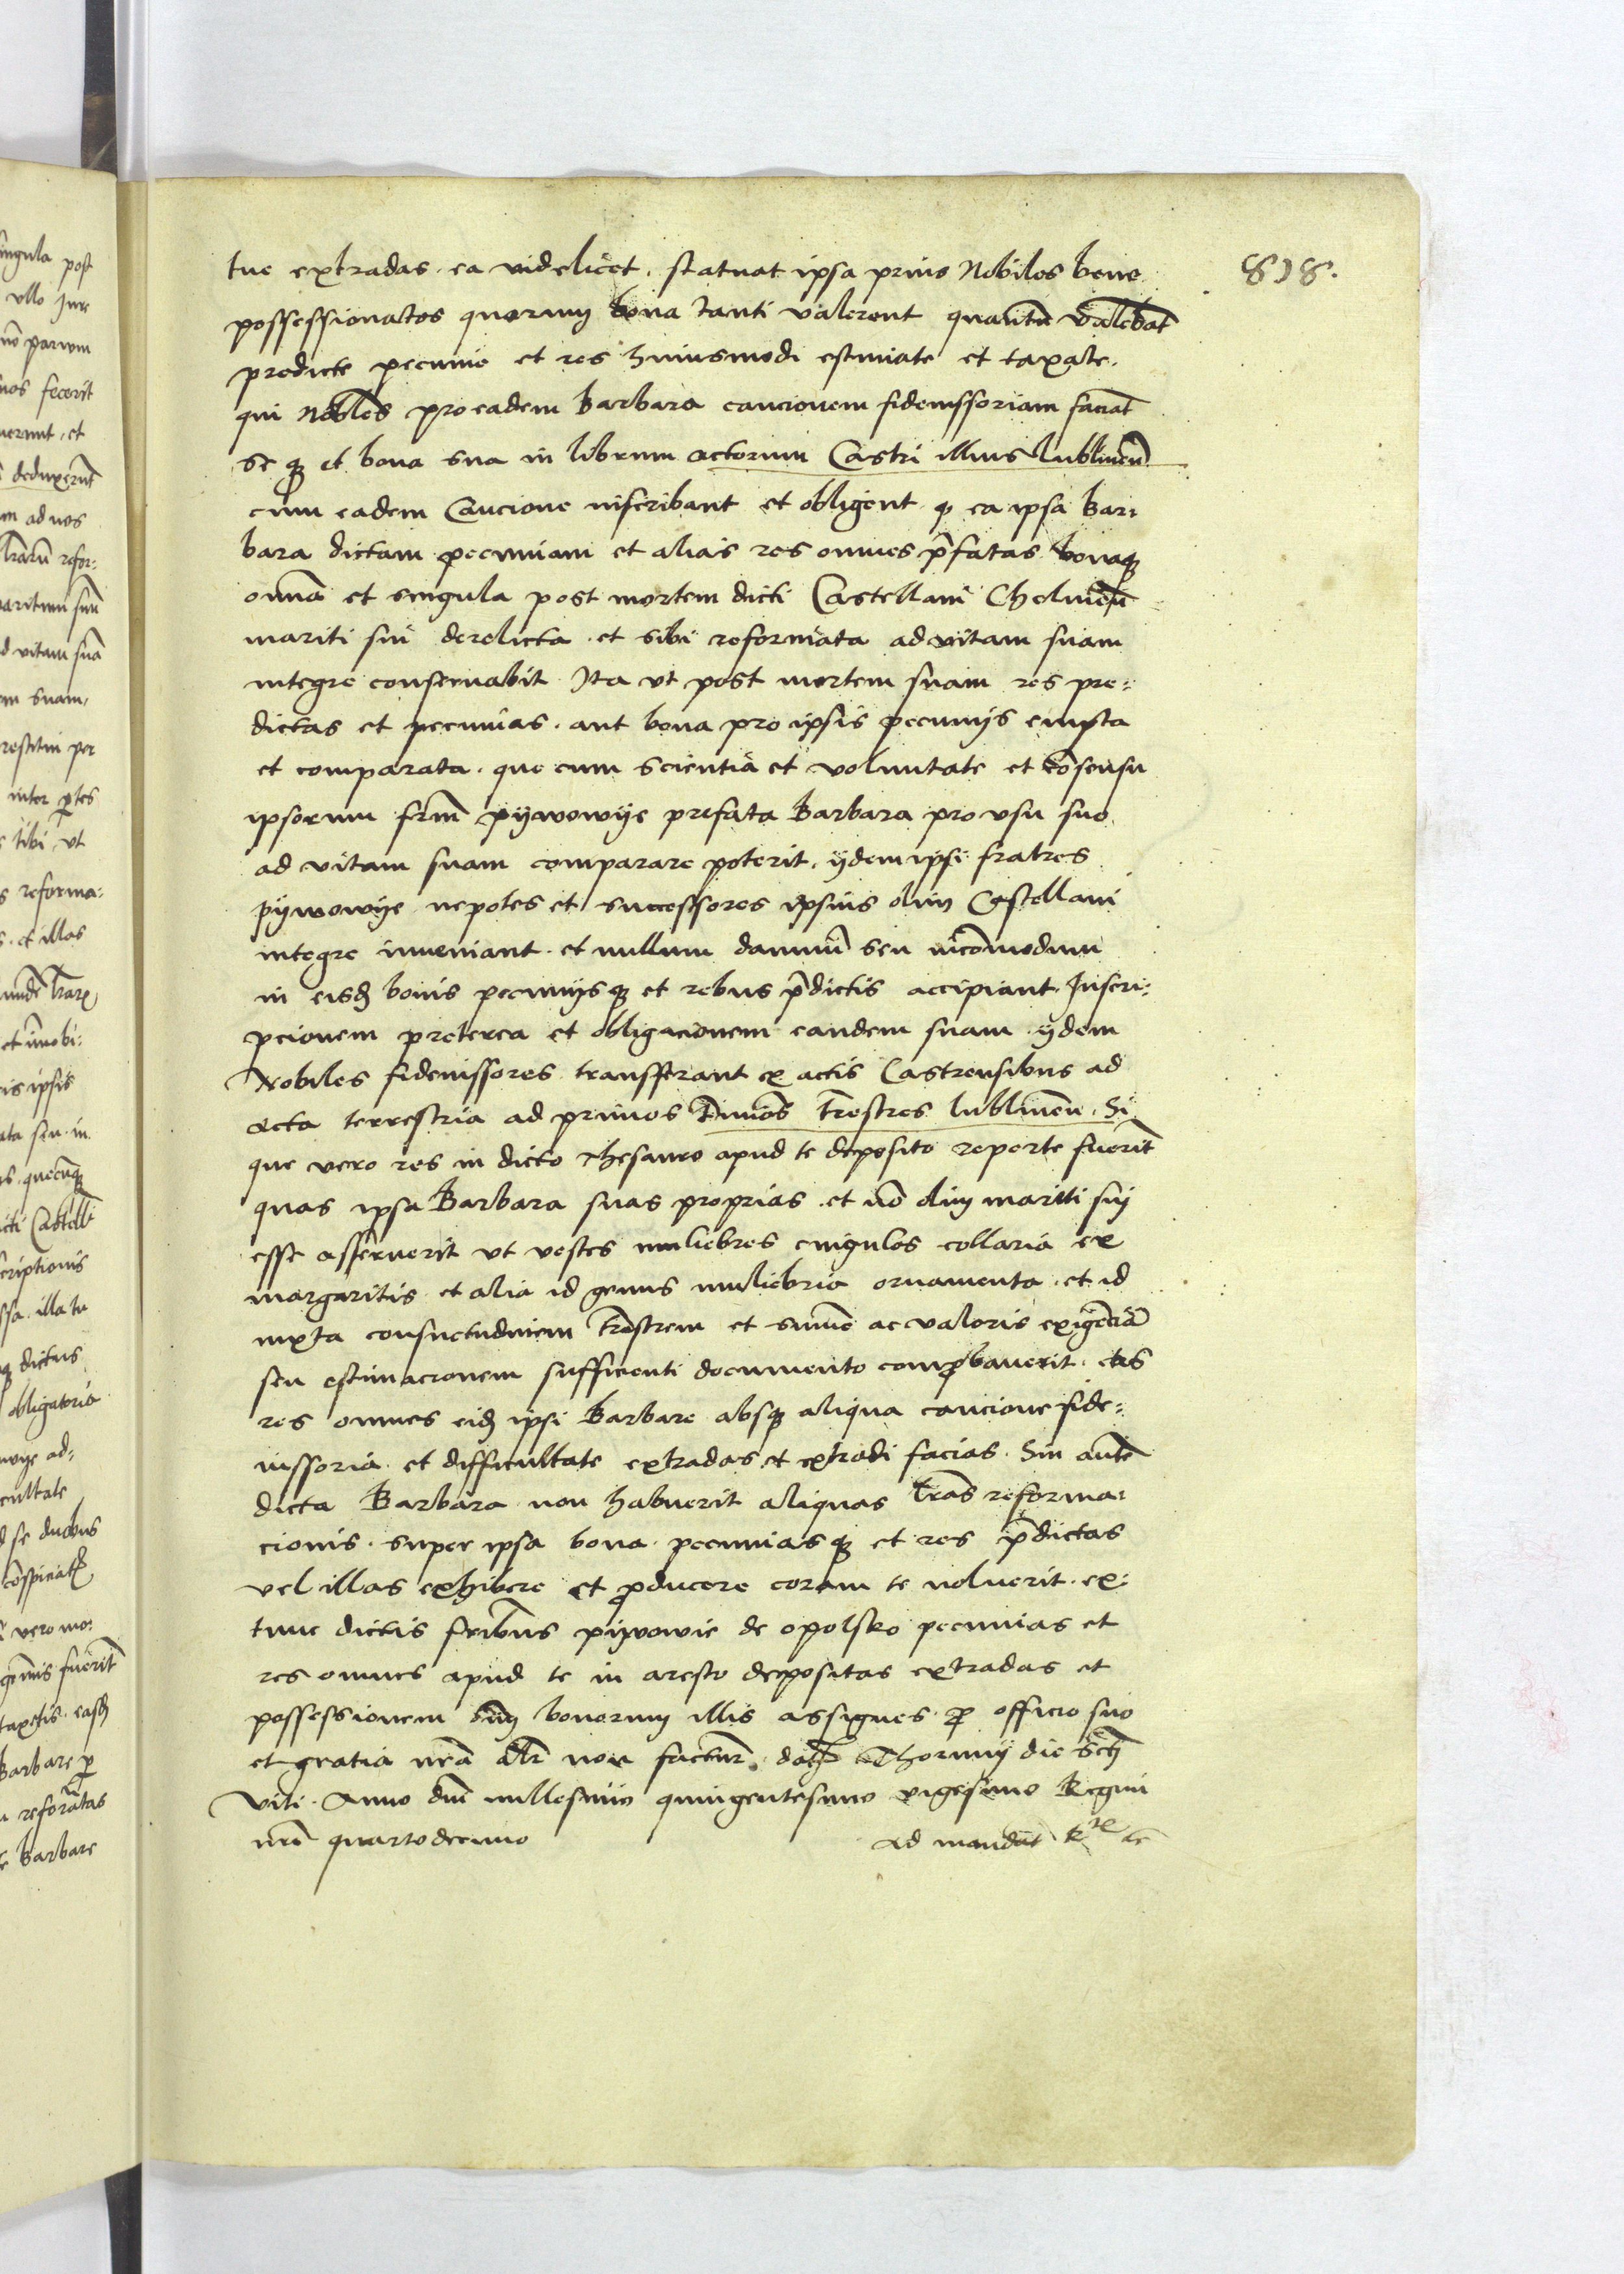 818.
tuc extradas. ea videlicet. statuat ipsa prius Nobiles bene
possessionatos quorum bona tanti valerent quantũ valebãt
predicte pecunie et res huiusmodi estimate et taxate.
qui Nobiles pro eadem Barbara caucionem fideiussoriam faciãt
seq₃ et bona sua in librum actorum Castri illius lublineñ
cum eadem Caucione inscribant et obligent q ea ipsa Bar:
bara dictam pecuniam et alias res omnes p̃fatas bonaq₃
omña et singula post mortem dicti Castellani Chelmeñ
mariti sui derelicta. et sibi reformata ad vitam suam
integre conseruabit Ita vt post mortem suam res pre:
dictas et pecunias. aut bona pro ipsis pecunijs empta
et comparata. que cum scientia et voluntate et cõsensu
ipsorum frm̃ pywowije prefata Barbara pro vsu suo
ad vitam suam comparare poterit. ijdem ipsi fratres
pijwowije nepotes et successores ipsius olim Castellani
integre inueniant. et nullum damnũ seu incõmodum
in eisd bonis pecunijsq₃ et rebus p̃dictis accipiant. Inscri:
pcionem preterea et obligacionem eandem suam ijdem
Nobiles fideiussores transferant ex actis Castrensibus ad
acta terrestria ad primos t̃minos tr̃estres lublineñ. Si
que vero res in dicto thesauro apud te deposito reperte fuerit̃
quas ipsa Barbara suas proprias. et nõ olim mariti sui
esse asseruerit vt vestes muliebres cingulos collaria ex
margaritis et alia id genus muliebria ornamenta. et id
iuxta consuetudinem tr̃estrem et summe ac valoris exigẽciã
seu estimacionem sufficienti documento comprobauerit. eas
res omnes eid ipsi Barbare absq₃ aliqua caucione fide:
iussoria et difficultate extradas et extradi facias. Sin autẽ
dicta Barbara non habuerit aliquas lr̃as reforma:
cionis. super ipsa bona. pecuniasq₃ et res p̃dictas
vel illas exhibere et producere coram te noluerit. ex:
tunc dictis fr̃ibus pijwowie de opolsko pecunias et
res omnes apud te in aresto depositas extradas et
possessionem bonorum illis assignes. p officio suo
et gratia nr̃a alr̃ non factur. dat Thorunij die Sc̃ti
Viti. Anno dñi millesimo quingentesimo vigesimo Regni
nr̃i quartodecimo
Ad mandat̃ R